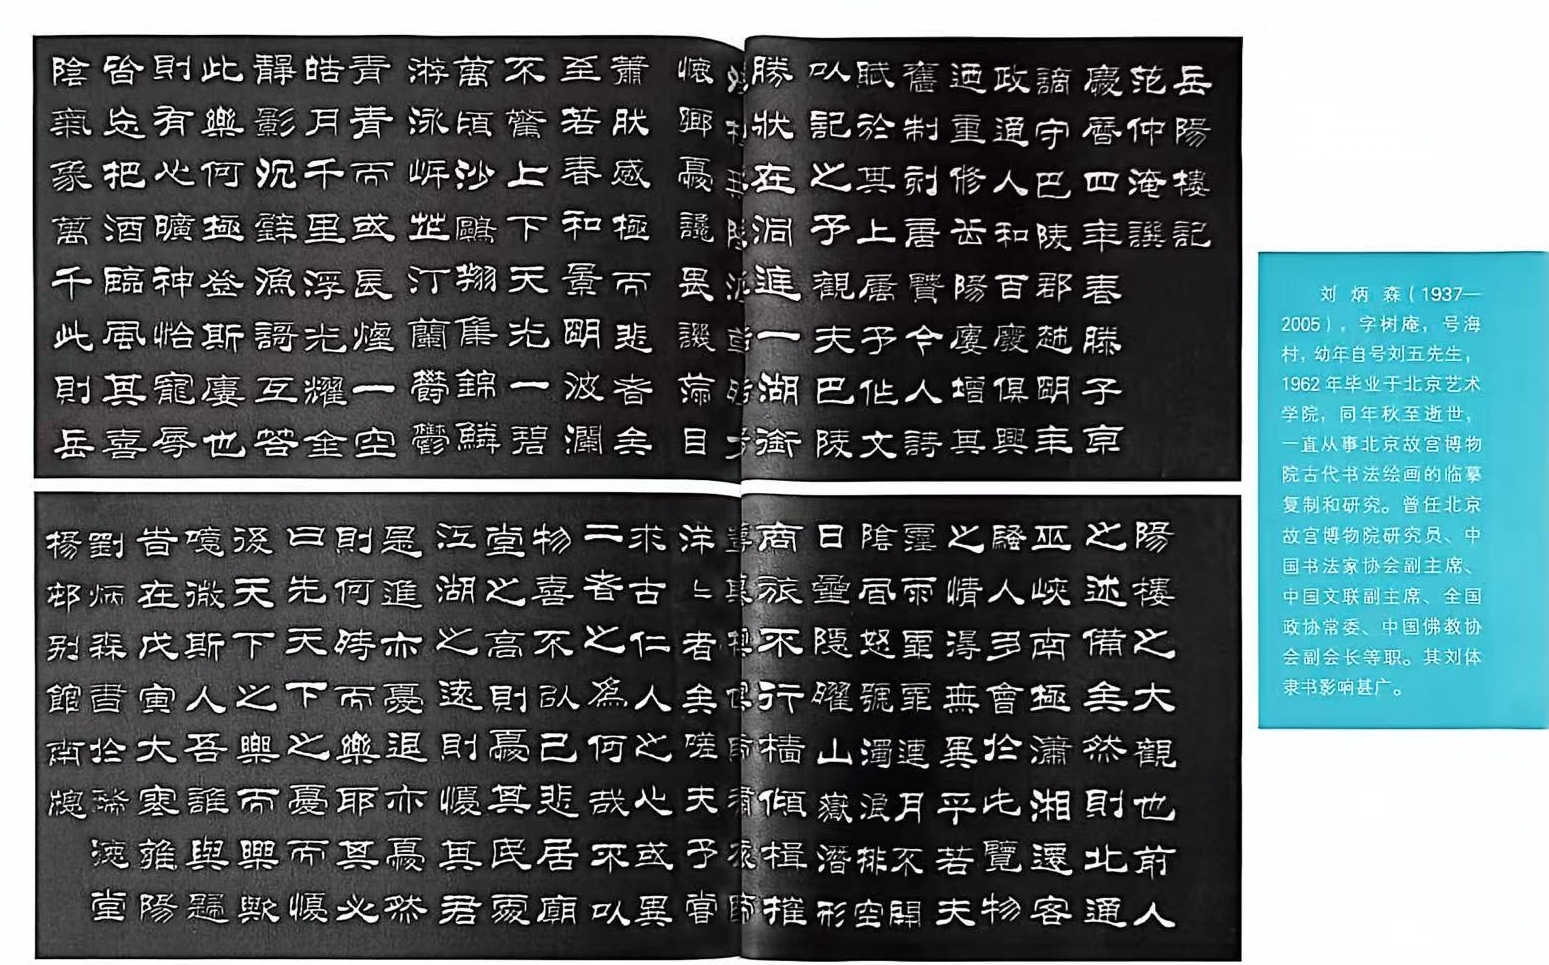 岳陽樓記
范仲淹譔
慶曆四年春滕子京
謫守巴陵郡越明年
政通人和百廢俱興
迺重修岳陽廔增其
舊制刻唐賢今人詩
賦於其上屬予作文
以記之予觀夫巴陵
勝狀在洞庭一湖銜
懷鄉憂讒畏譏滿目
蕭然感極而悲者矣
至若春和景明波瀾
不驚上下天光一碧
萬頃沙鷗翔集錦鱗
游泳岸芷汀蘭鬱鬱
青青而或長煙一空
皓月千里浮光耀金
靜影沉璧漁謌互答
此樂何極登斯廔也
則有心曠神怡寵辱
皆忘把酒臨風其喜
陰氣象萬千此則岳
陽樓之大觀也前人
之述備矣然則北通
巫峽南極瀟湘遷客
騷人多會於此覽物
之情得無異乎若夫
霪雨霏霏連月不開
陰風怒號濁浪排空
日星隱曜山嶽潛形
商旅不行檣傾楫摧
洋洋者矣嗟夫予嘗
求古仁人之心或異
二者之為何哉不以
物喜不以己悲居廟
堂之高則憂其民處
江湖之遠則憂其君
是進亦憂退亦憂然
則何時而樂耶其必
曰先天下之憂而憂
後天下之樂而樂歟
噫微斯人吾誰與歸
昔在戊寅大寒雒陽
劉炳森書於瑞德堂
楊邨別館南牕
刘炳森（1937—
2005），字树庵，号海
村，幼年自号刘五先生，
1962年毕业于北京艺术
学院，同年秋至逝世，
一直从事北京故宫博物
院古代书法绘画的临摹
复制和研究。曾任北京
故宫博物院研究员、中
国书法家协会副主席、
中国文联副主席、全国
政协常委、中国佛教协
会副会长等职。其刘体
隶书影响甚广。